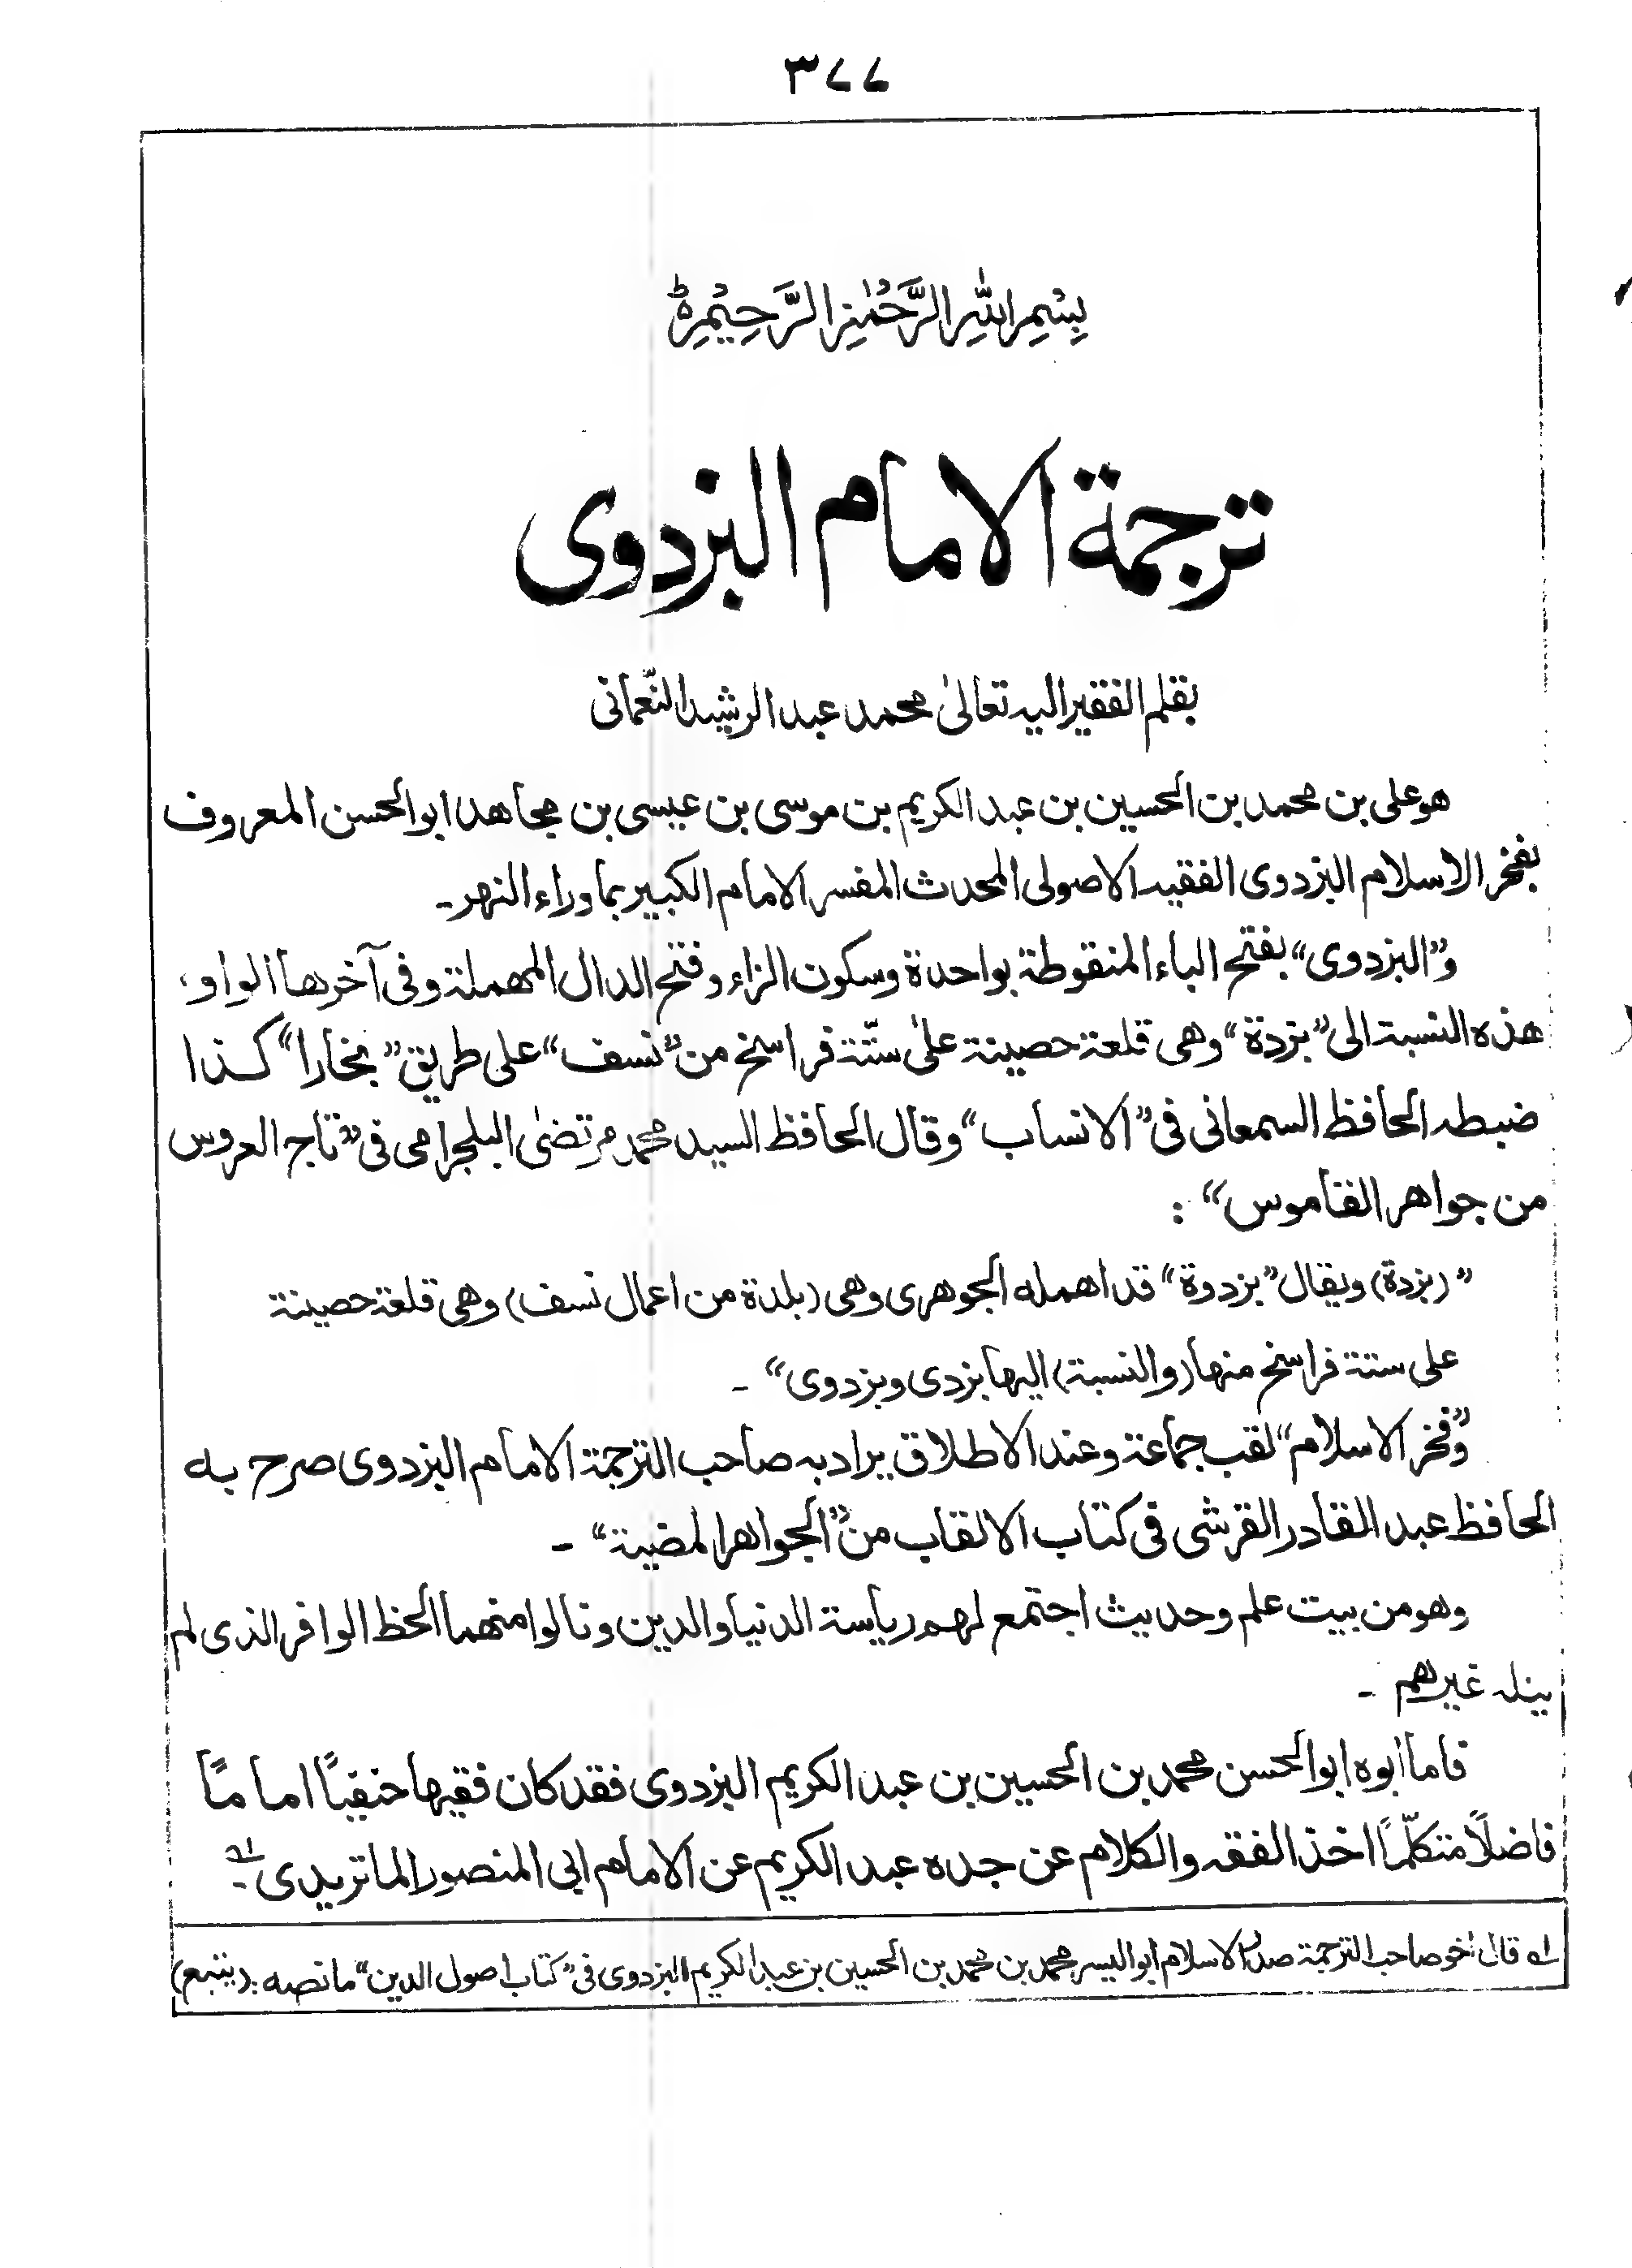 ٣٧٧
بِسْمِ اللهِ الرَّحْمٰنِ الرَّحِيْمِ ط
ترجمة الامام البزدوى
بقلم الفقير اليه تعالىٰ محمد عبد الرشيد النّعمانى
هو على بن محمد بن الحسين بن عبد الكريم بن موسى بن عيسى بن مجاهد ابو الحسن المعروف
بفخر الاسلام البزدوى الفقيه الاصولى المحدث المفسر الامام الكبير بما وراء النهر -
و”البزدوى“ بفتح الباء المنقوطة بواحدة وسكون الزاء وفتح الدال المهملة وفى آخرها الواو،
هذه النسبة الى ”بزدة“ وهى قلعة حصينة علىٰ ستّة فراسخ من ”نسف“ على طريق ”بخارا“ كذا
ضبطه الحافظ السمعانى فى ”الانساب“ وقال الحافظ السيد محمد مرتضىٰ البلجرامى فى ”تاج العروس
من جواهر القاموس“ :
”(بزدة) ويقال ”بزدوة“ قد اهمله الجوهرى وهى (بلدة من اعمال نسف) وهى قلعة حصينة
على ستة فراسخ منها (والنسبة) اليها بزدى وبزدوى“ -
و”فخر الاسلام“ لقب جماعة وعند الاطلاق يراد به صاحب الترجمة الامام البزدوى صرح به
الحافظ عبد القادر القرشى فى كتاب الالقاب من ”الجواهر المضية“ -
وهو من بيت علم وحديث اجتمع لهم رياسة الدنيا والدين ونالوا منهما الحظ الوافر الذى لم
ينله غيرهم -
فاما أبوه ابو الحسن محمد بن الحسين بن عبد الكريم البزدوى فقد كان فقيها حنفياً اماماً
فاضلاً متكلّماً اخذ الفقه والكلام عن جده عبد الكريم عن الامام ابى المنصور الماتريدى له -
له قال اخو صاحب الترجمة صدر الاسلام ابو اليسر محمد بن محمد بن الحسين بن عبد الكريم البزدوى فى ”كتاب اصول الدين“ ما نصه :- (يتبع)